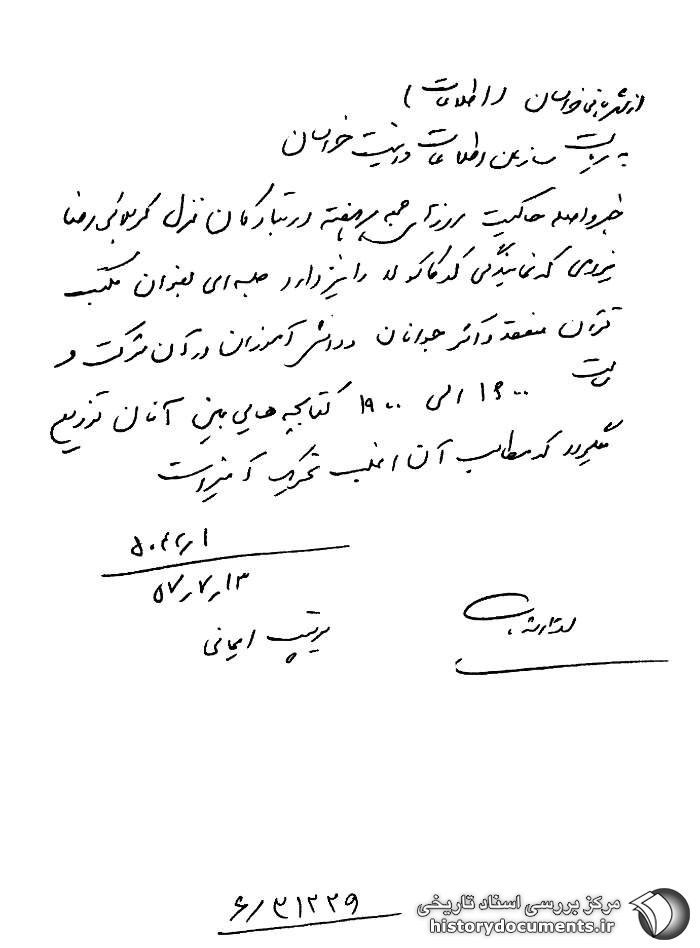 از شهربانی خراسان (اطلاعات)
به ریاست سازمان اطلاعات و امنیت خراسان
خبر واصله حاکیست روزهای جمعه هر هفته در تبادکان منزل کربلائی رضا
که نمایندگی کوکاکولا را نیز دارد جلسه‌ای بعنوان مکتب
قرآن منعقد و اکثر جوانان و دانش آموزان در آن شرکت و
ساعت ۱۶۰۰ الی ۱۹۰۰ کتابچه هایی بین آنان توزیع
میگردد که مطالب آن اغلب تحریک آمیز است
۵۷/۷/۱۳
سرتیپ ایمانی
۶/۳۱۲۲۹
مرکز بررسی اسناد تاریخی
historydocuments.ir